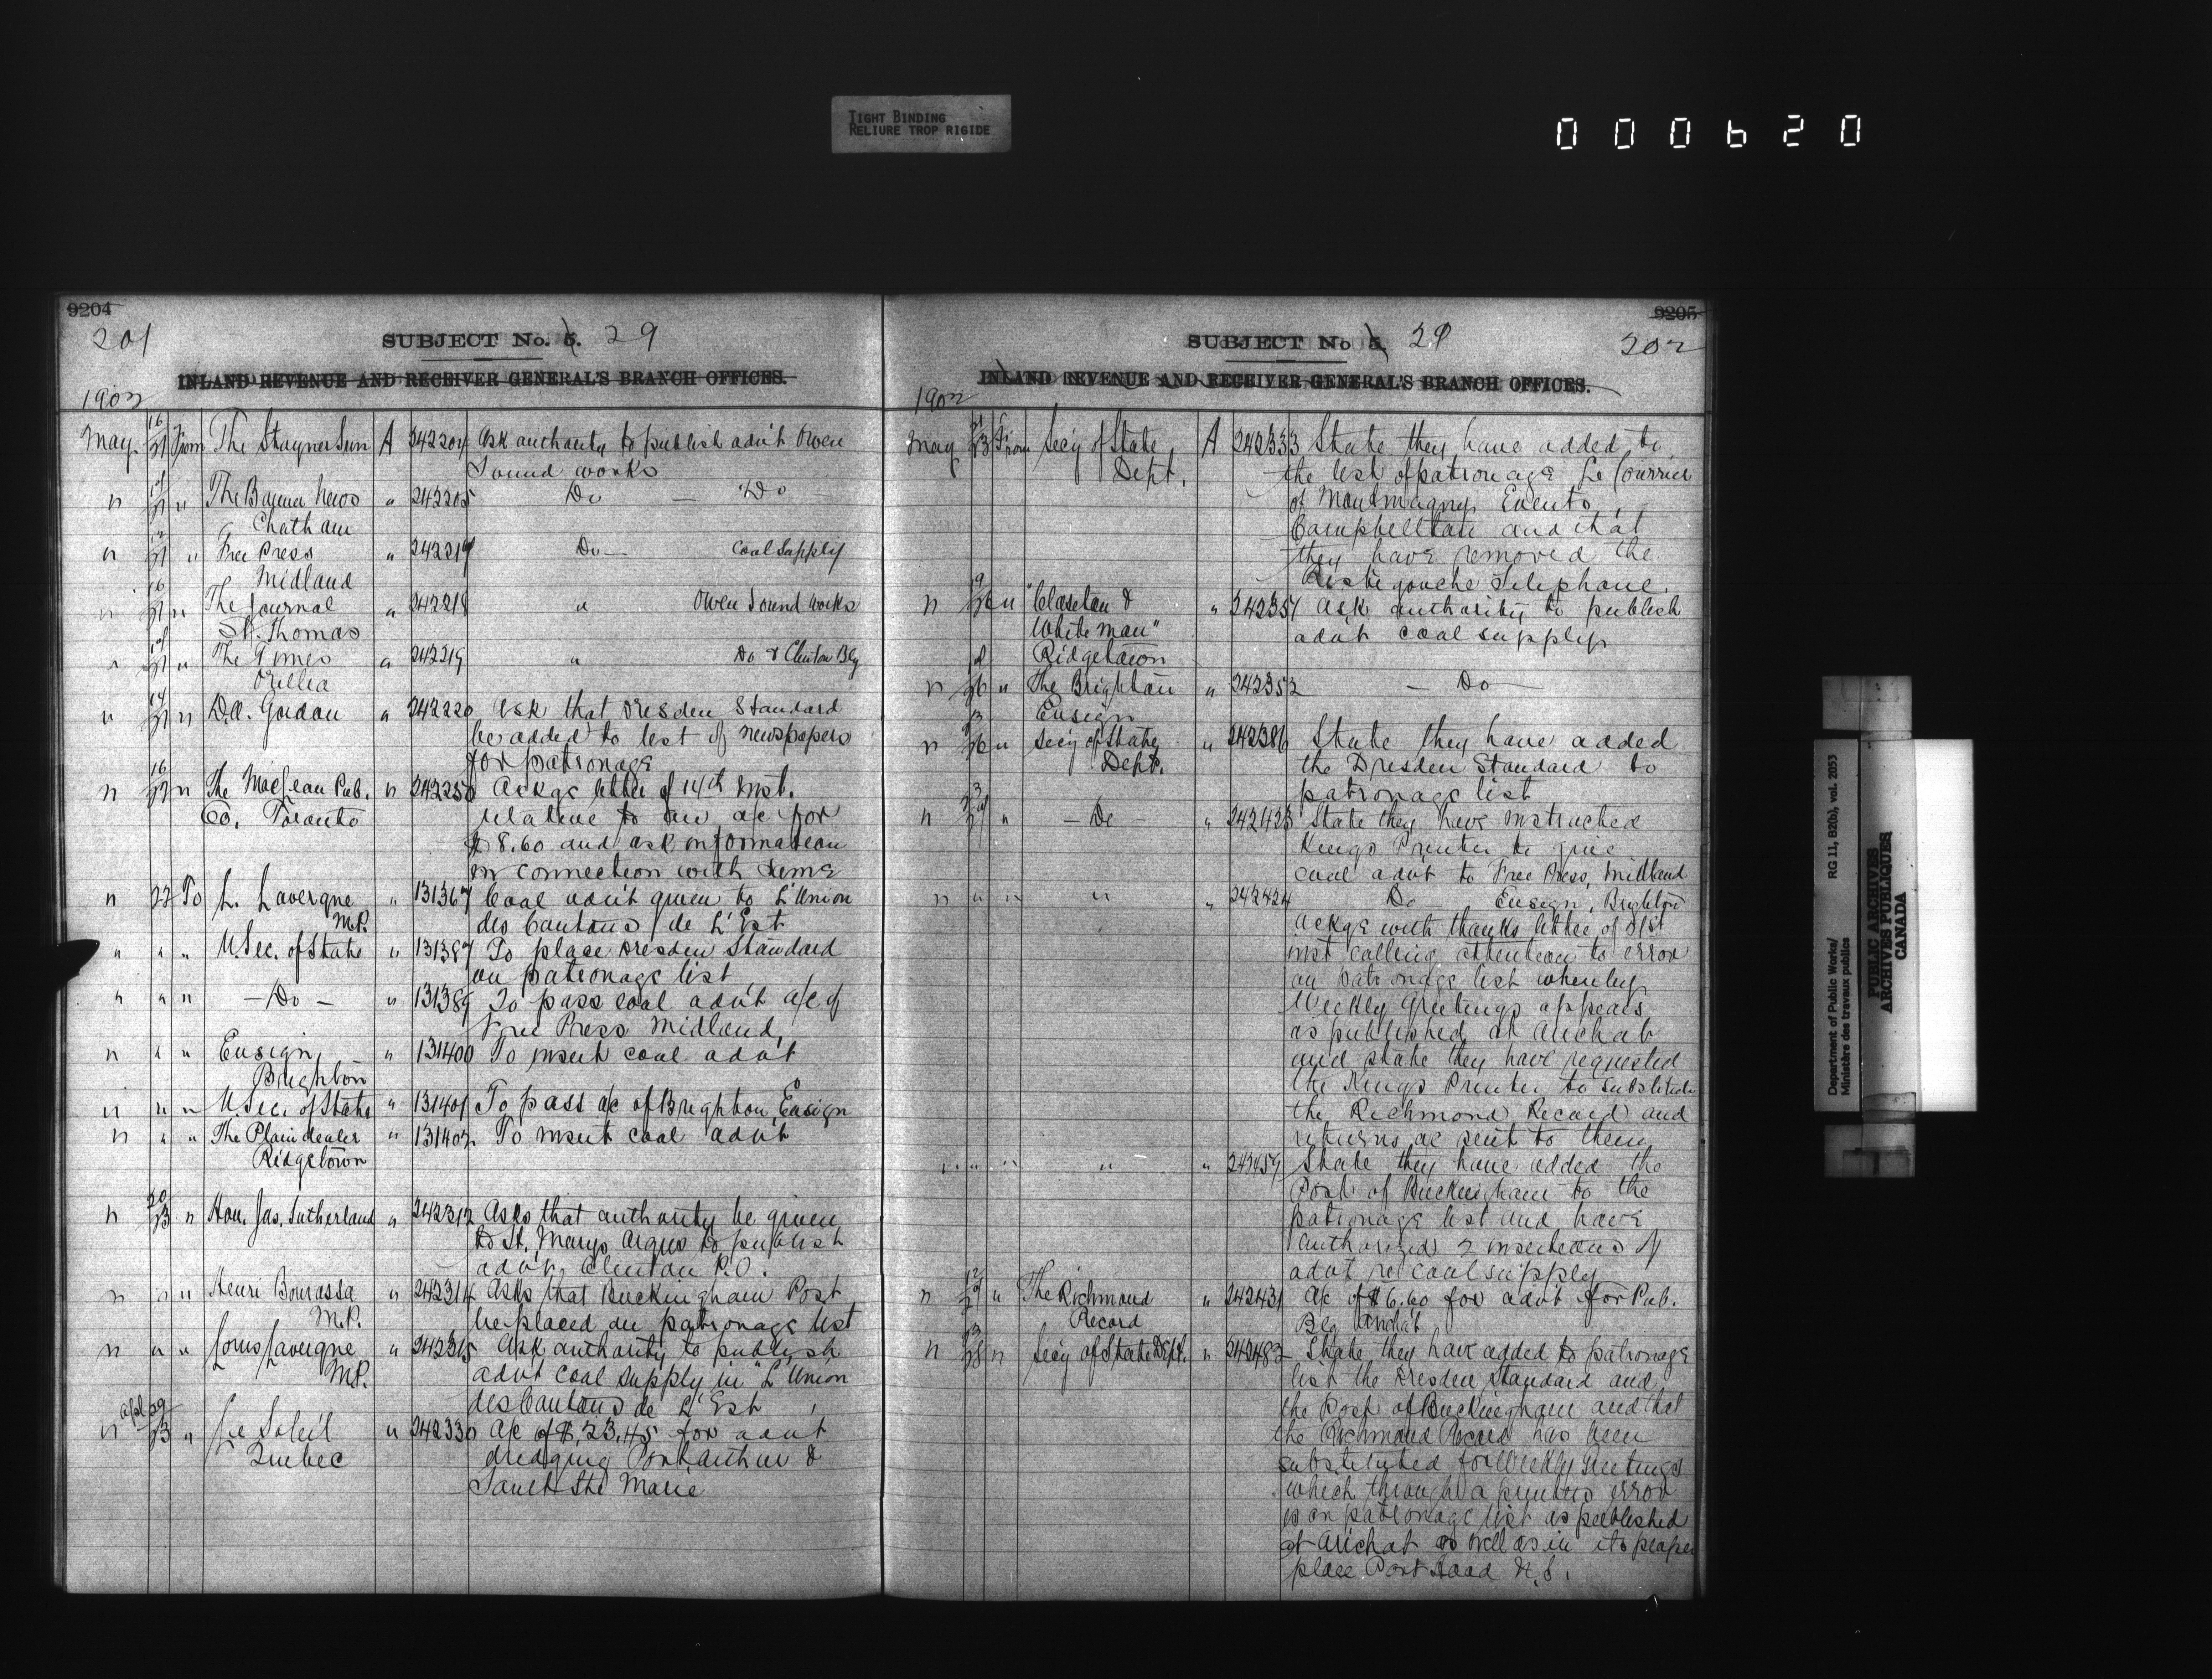 TIGHT BINDING
RELIURE TROP RIGIDE
000620
9204
201
SUBJECT No. 5. 29
INLAND REVENUE AND RECEIVER GENERAL'S BRANCH OFFICES.
1902
May 16/21 From The Stayner Sun A 242204 Ask authority to publish advt Owen
Sound works
" " The Banner News " 242205 Do — Do
Chatham
" " Free Press " 242217 Do — Coal Supply
Midland
" 16/21 " The Journal " 242218 " Owen Sound works
St. Thomas
" " The Times " 242219 " Do & Clinton Bg
Orillia
" 17/21 " D.A. Gordon " 242220 Ask that Dresden Standard
be added to list of newspapers
for patronage
" 16 " The MacLean Pub. " 242250 Ackge letter of 14th inst.
Co. Toronto relative to an a/c for
$8.60 and ask information
in connection with same
" 22 To L. Lavergne " 131367 Coal advt given to L'Union
M.P. des Cantons de L'Est
" " " U. Sec. of State " 131387 To place Dresden Standard
on patronage list
" " " — Do — " 131389 To pass coal advt a/c of
Free Press Midland,
" " " Ensign, " 131400 To insert coal advt
Brighton
" " " U. Sec. of State " 131401 To pass a/c of Brighton Ensign
" " " The Plaindealer " 131402 To insert coal advt
Ridgetown
" 20/23 " Hon. Jas. Sutherland " 242312 Asks that authority be given
to St. Marys Argus to publish
advt, Clinton P.O.
" " " Henri Bourassa " 242314 Asks that Buckingham Post
M.P. be placed on patronage list
" " " Louis Lavergne " 242315 Ask authority to publish
M.P. advt coal supply in "L'Union
des Cantons de L'Est
Apl 29
" 23 " Le Soleil " 242330 A/c of $23.45 for advt
Quebec dredging Port Arthur &
Sault Ste Marie
9205
SUBJECT No 5, 29 202
INLAND REVENUE AND RECEIVER GENERAL'S BRANCH OFFICES.
1902
May 21/23 From Sec'y of State A 242333 State they have added to
Dept. the list of patronage Le Courrier
of Montmagny, Events,
Campbellton and that
they have removed the
Restigouche Telephone.
" 19/26 " "Claseton & " 242357 Ask authority to publish
Whiteman" advt coal supply
Ridgetown
" 26 " The Brighton " 242352 — Do —
Ensign
" 23/26 " Sec'y of State " 242386 State they have added
Dept. the Dresden Standard to
patronage list
" 23/27 " — Do — " 242423 State they have instructed
Kings Printer to give
coal advt to Free Press, Midland
" " " " " 242424 Do Ensign, Brighton
Ackge with thanks letter of 21st
inst calling attention to error
on patronage list whereby
Weekly Greetings appears
as published at Arichat
and state they have requested
the Kings Printer to substitute
the Richmond Record and
returns a/c sent to them
" " " " " 242459 State they have added the
Post of Buckingham to the
patronage list and have
authorized 2 insertions of
advt re coal supply
" " The Richmond " 242431 A/c of $6.60 for advt for Pub.
Record Bg Arichat
" 23/28 " Sec'y of State Dept. " 242482 State they have added to patronage
list the Dresden Standard and
the Post of Buckingham and that
the Richmond Record has been
substituted for Weekly Greetings
which through a printers error
is on patronage list as published
at Arichat as well as in its proper
place Port Hood N.S.
Department of Public Works/ RG 11, B2(b), vol. 2053
Ministère des travaux publics
PUBLIC ARCHIVES
ARCHIVES PUBLIQUES
CANADA